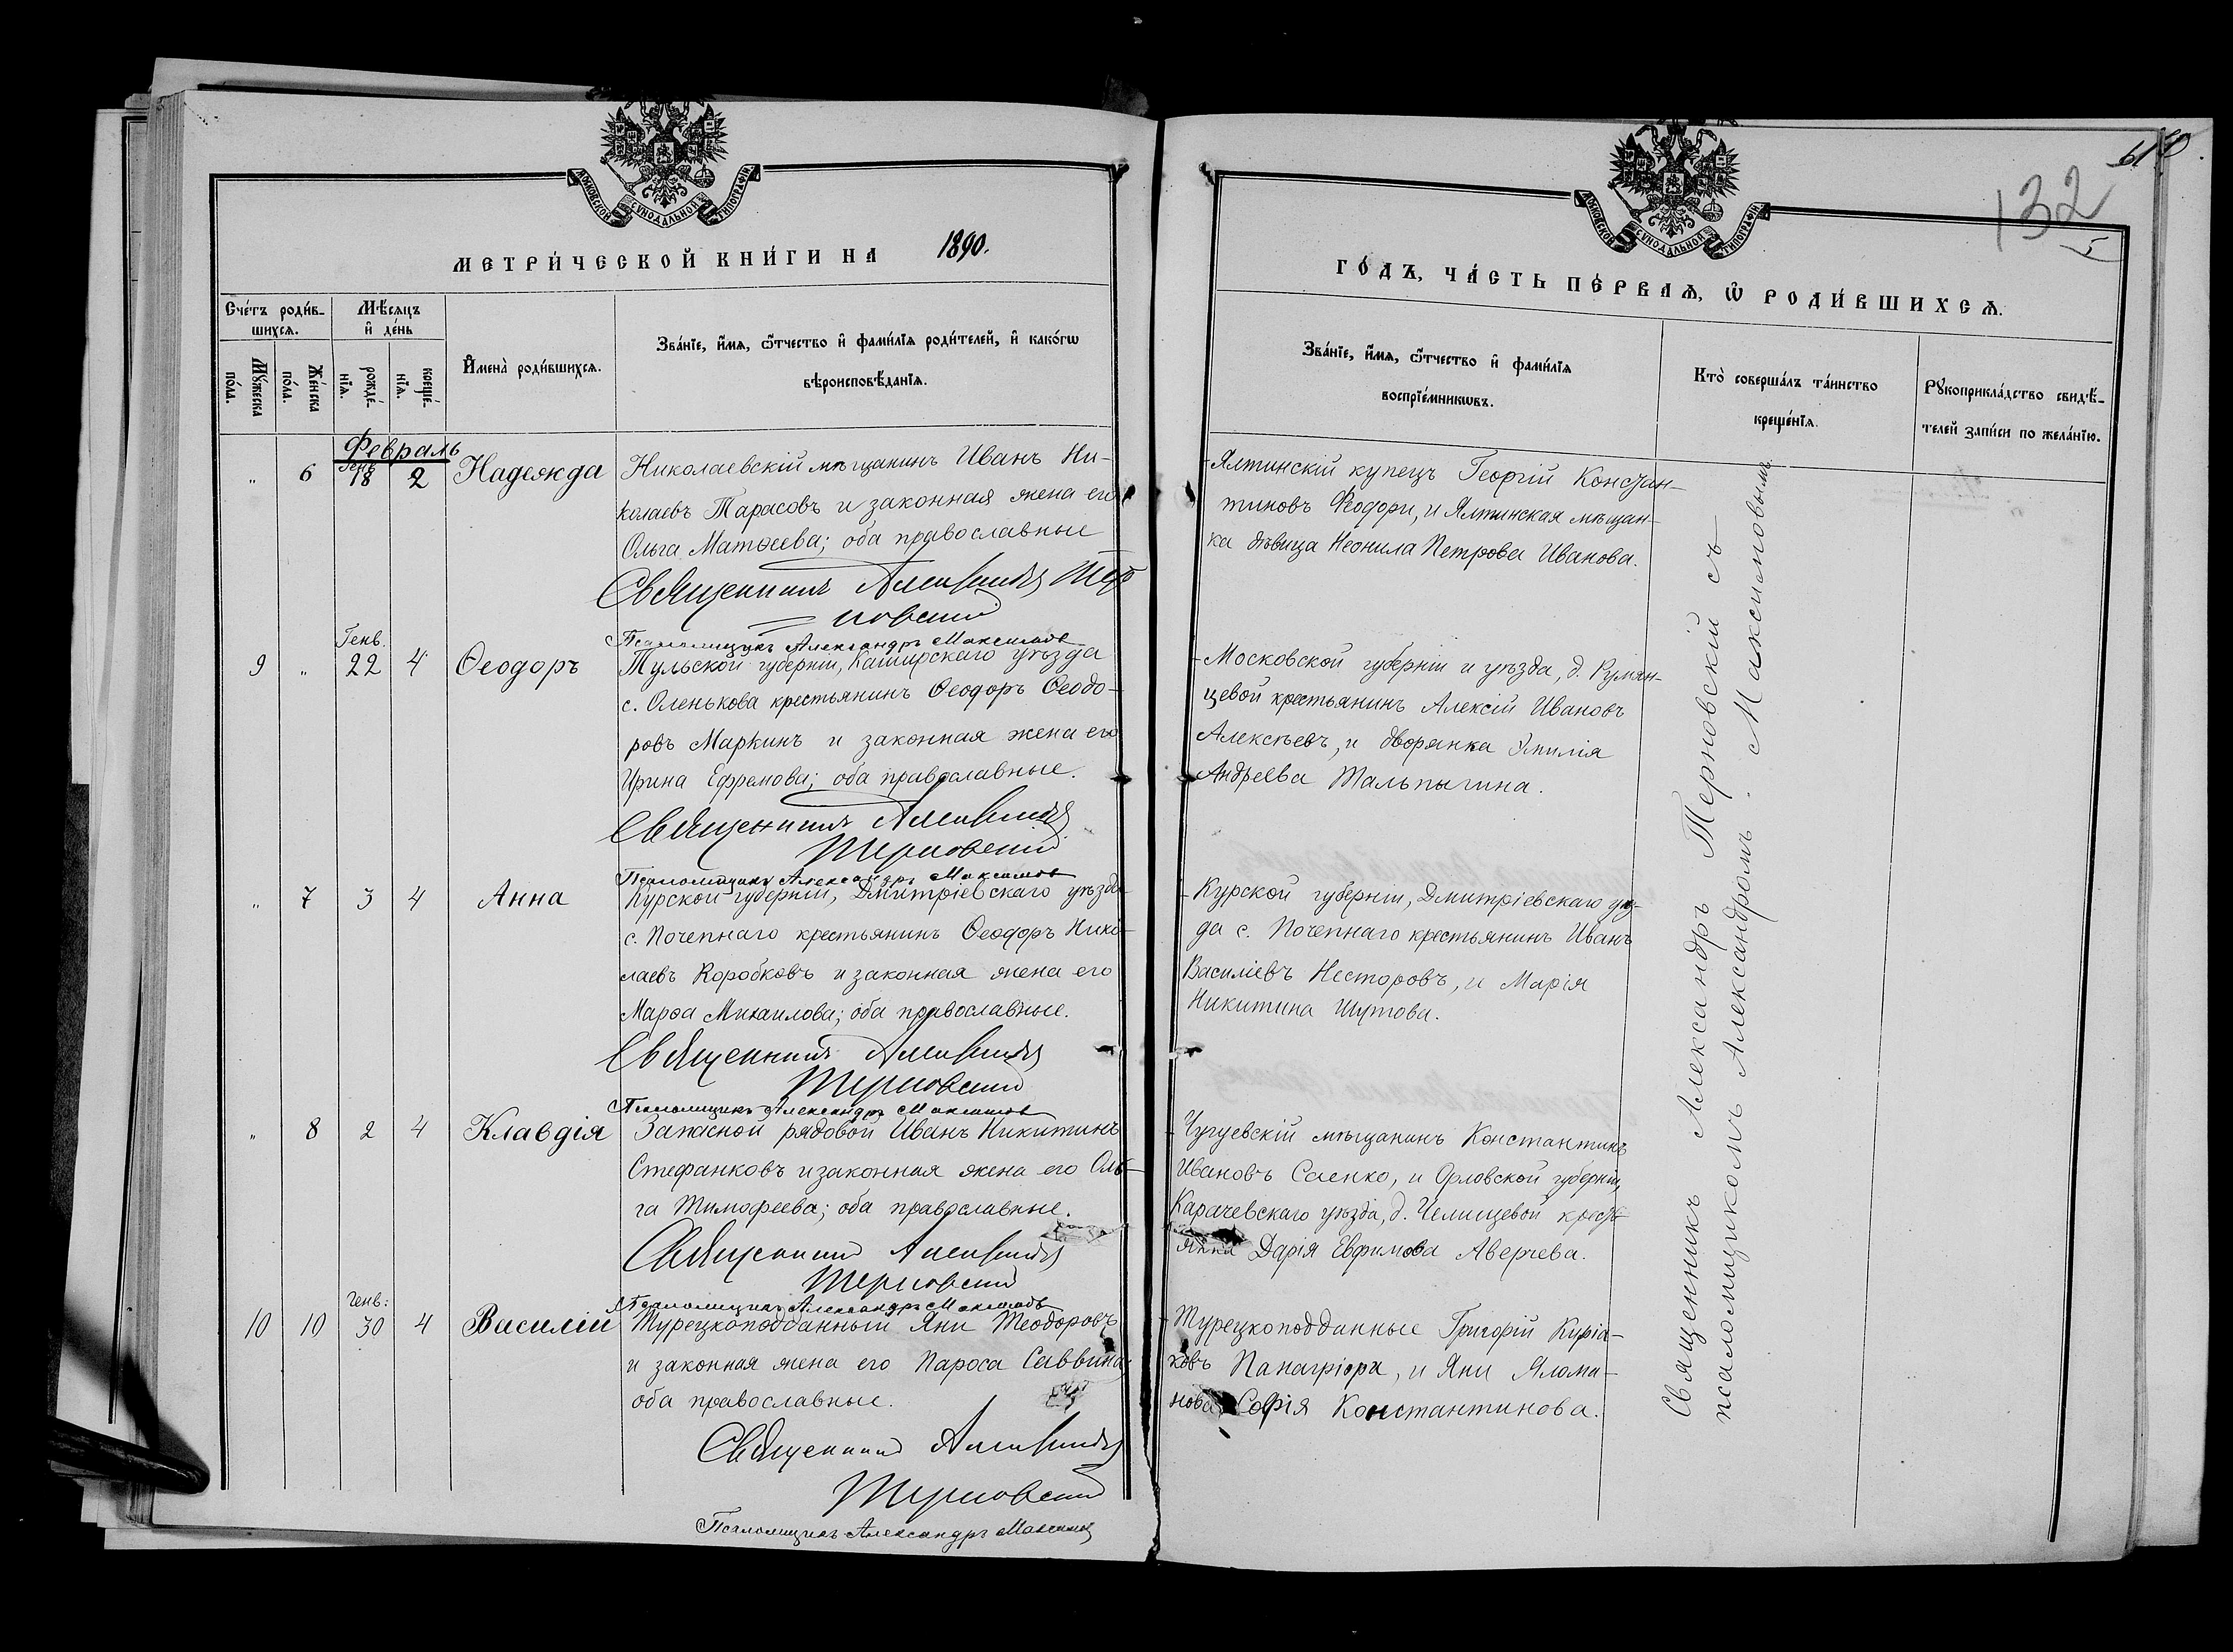 МОСКОВСКОЙ СѴНОДАЛЬНОЙ ТИПОГРАФІИ
МЕТРИ́ЧЕСКОЙ КНИ́ГИ НА 1890.
Сче́тъ роди́в-
шихсѧ.
Мѣ́сѧцъ
и҆ де́нь
Мꙋ́жеска
по́ла.
Же́нска
по́ла.
рожде́-
нїѧ.
креще́-
нїѧ.
И҆мена̀ роди́вшихсѧ.
Зва́нїе, и҆́мѧ, ѻ҆́тчество и҆ фами́лїѧ роди́телей, и҆ како́гѡ
вѣроисповѣ́данїѧ.
Февраль
" 6 Генв 18 2 Надежда
Николаевскій мѣщанинъ Иванъ Ни-
колаевъ Тарасовъ и законная жена его
Ольга Матѳеева; оба православные
Священникъ Александръ Тер
новскій
Псаломщикъ Александръ Максимовъ
Генв.
9 " 22 4 Ѳеодоръ
Тульской губерніи, Каширскаго уѣзда
с. Оленькова крестьянинъ Ѳеодоръ Ѳеодо-
ровъ Маркинъ и законная жена его
Ирина Ефремова; оба православные.
Священникъ Александръ
Терновскій
Псаломщикъ Александръ Максимовъ
" 7 3 4 Анна
Курской губерніи, Дмитріевскаго уѣзда
с. Почепнаго крестьянинъ Ѳеодоръ Нико-
лаевъ Коробковъ и законная жена его
Марѳа Михаилова; оба православные.
Священникъ Александръ
Терновскій
Псаломщикъ Александръ Максимовъ
" 8 2 4 Клавдія
Запасной рядовой Иванъ Никитинъ
Стефанковъ и законная жена его Оль-
га Тимофеева; оба православные.
Священникъ Александръ
Терновскій
Псаломщикъ Александръ Максимовъ
Генв:
10 10 30 4 Василій
Турецкоподданный Яни Теодоровъ
и законная жена его Пароса Саввина,
оба православные.
Священникъ Александръ
Терновскій
Псаломщикъ Александръ Максимовъ
132
5
МОСКОВСКОЙ СѴНОДАЛЬНОЙ ТИПОГРАФІИ
ГО́ДЪ, ЧА́СТЬ ПЕ́РВАѦ, Ѡ҆ РОДИ́ВШИХСѦ.
Зва́нїе, и҆́мѧ, ѻ҆́тчество и҆ фами́лїѧ
воспрїе́мникѡвъ.
Кто̀ соверша́лъ та́инство
креще́нїѧ.
Рꙋкоприкла́дство свидѣ́-
телей за́писи по жела́нїю.
Ялтинскій купецъ Георгій Констан-
тиновъ Феодори, и Ялтинская мѣщан-
ка дѣвица Неонила Петрова Иванова.
Московской губерніи и уѣзда, д. Румян-
цевой крестьянинъ Алексій Ивановъ
Алексѣевъ, и дворянка Эмилія
Андреева Тальпыгина.
Курской губерніи, Дмитріевскаго уѣз-
да с. Почепнаго крестьянинъ Иванъ
Василіевъ Несторовъ, и Марія
Никитина Шутова.
Чугуевскій мѣщанинъ Константинъ
Ивановъ Саенко, и Орловской губерніи,
Карачевскаго уѣзда, д. Челищевой кресть-
янка Дарія Евфимова Аверчева.
Турецкоподданные Григорій Куріа-
ковъ Панагріора, и Яни Ялома-
нова Софія Константинова.
Священникъ Александръ Терновскій съ
псаломщикомъ Александромъ Максимовымъ